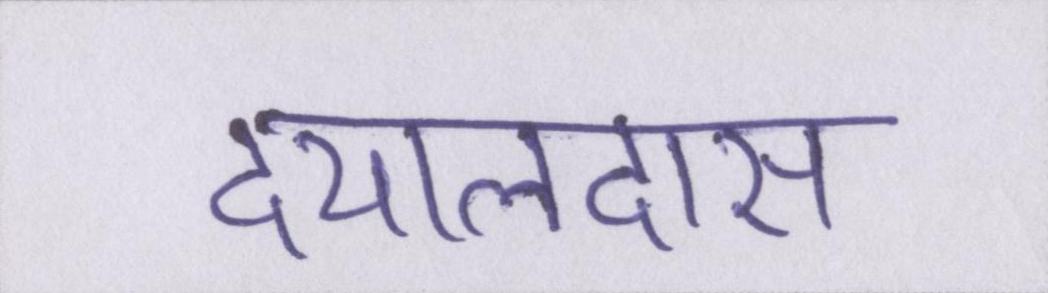 दयालदास